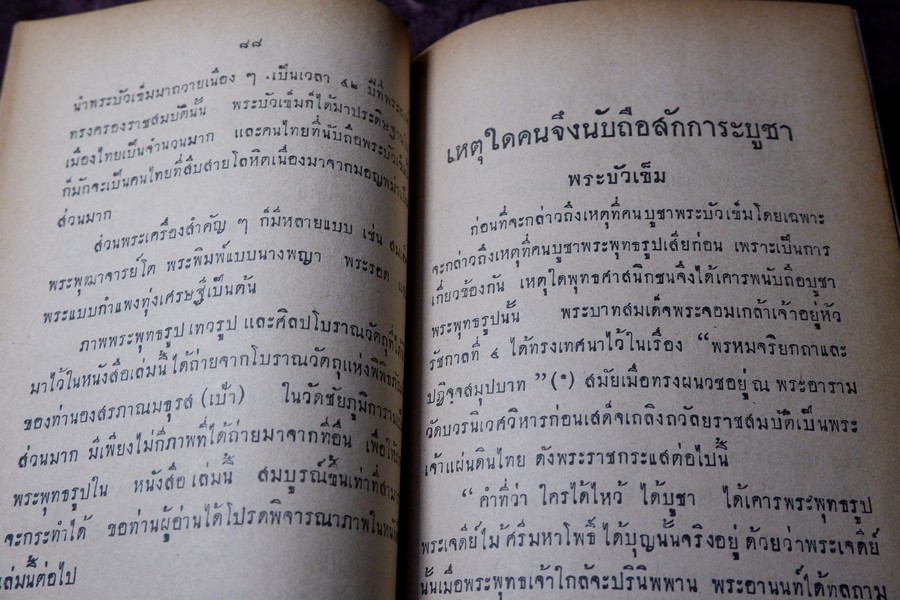 ๘๘
นำพระบัวเข็มมาถวายเนือง ๆ .เป็นเวลา ๕๒ ปีที่พระ
ทรงครองราชสมบัตินั้น พระบัวเข็มก็ได้มาประดิษฐาน
เมืองไทยเป็นจำนวนมาก และคนไทยที่นับถือพระบัวเข็ม
ก็มักจะเป็นคนไทยที่สืบสายโลหิตเนื่องมาจากมอญพม่าเป็น
ส่วนมาก
ส่วนพระเครื่องสำคัญ ๆ ก็มีหลายแบบ เช่น สมเด็จ
พระพุฒาจารย์โต พระพิมพ์แบบนางพญา พระรอด
พระแบบกำแพงทุ่งเศรษฐีเป็นต้น
ภาพพระพุทธรูป เทวรูป และศิลปโบราณวัตถุที่ได้
มาไว้ในหนังสือเล่มนี้ ได้ถ่ายจากโบราณวัตถุแห่งพิพิธภัณฑ์
ของท่านองสรภาณมธุรส (เป้า) ในวัดชัยภูมิการาม
ส่วนมาก มีเพียงไม่กี่ภาพที่ได้ถ่ายมาจากที่อื่น เพื่อให้
พระพุทธรูปใน หนังสือ เล่มนี้ สมบูรณ์ขึ้นเท่าที่สามารถ
จะกระทำได้ ขอท่านผู้อ่านได้โปรดพิจารณาภาพในหนังสือ
เล่มนี้ต่อไป
เหตุใดคนจึงนับถือสักการะบูชา
พระบัวเข็ม
ก่อนที่จะกล่าวถึงเหตุที่คนบูชาพระบัวเข็มโดยเฉพาะ
จะกล่าวถึงเหตุที่คนบูชาพระพุทธรูปเสียก่อน เพราะเป็นการ
เกี่ยวข้องกัน เหตุใดพุทธศาสนิกชนจึงได้เคารพนับถือบูชา
พระพุทธรูปนั้น พระบาทสมเด็จพระจอมเกล้าเจ้าอยู่หัว
รัชกาลที่ ๔ ได้ทรงเทศนาไว้ในเรื่อง “พรหมจริยกถาและ
ปฏิจฺจสมุปบาท ”(๑) สมัยเมื่อทรงผนวชอยู่ ณ พระอาราม
วัดบวรนิเวศวิหารก่อนเสด็จเถลิงถวัลยราชสมบัติเป็นพระ
เจ้าแผ่นดินไทย ดังพระราชกระแสต่อไปนี้
“ คำที่ว่า ใครได้ไหว้ ได้บูชา ได้เคารพระพุทธรูป
พระเจดีย์ไม้ ศรีมหาโพธิ์ ได้บุญนั้นจริงอยู่ ด้วยว่าพระเจดีย์
นั้นเมื่อพระพุทธเจ้าใกล้จะปรินิพพาน พระอานนท์ได้ทูลถาม